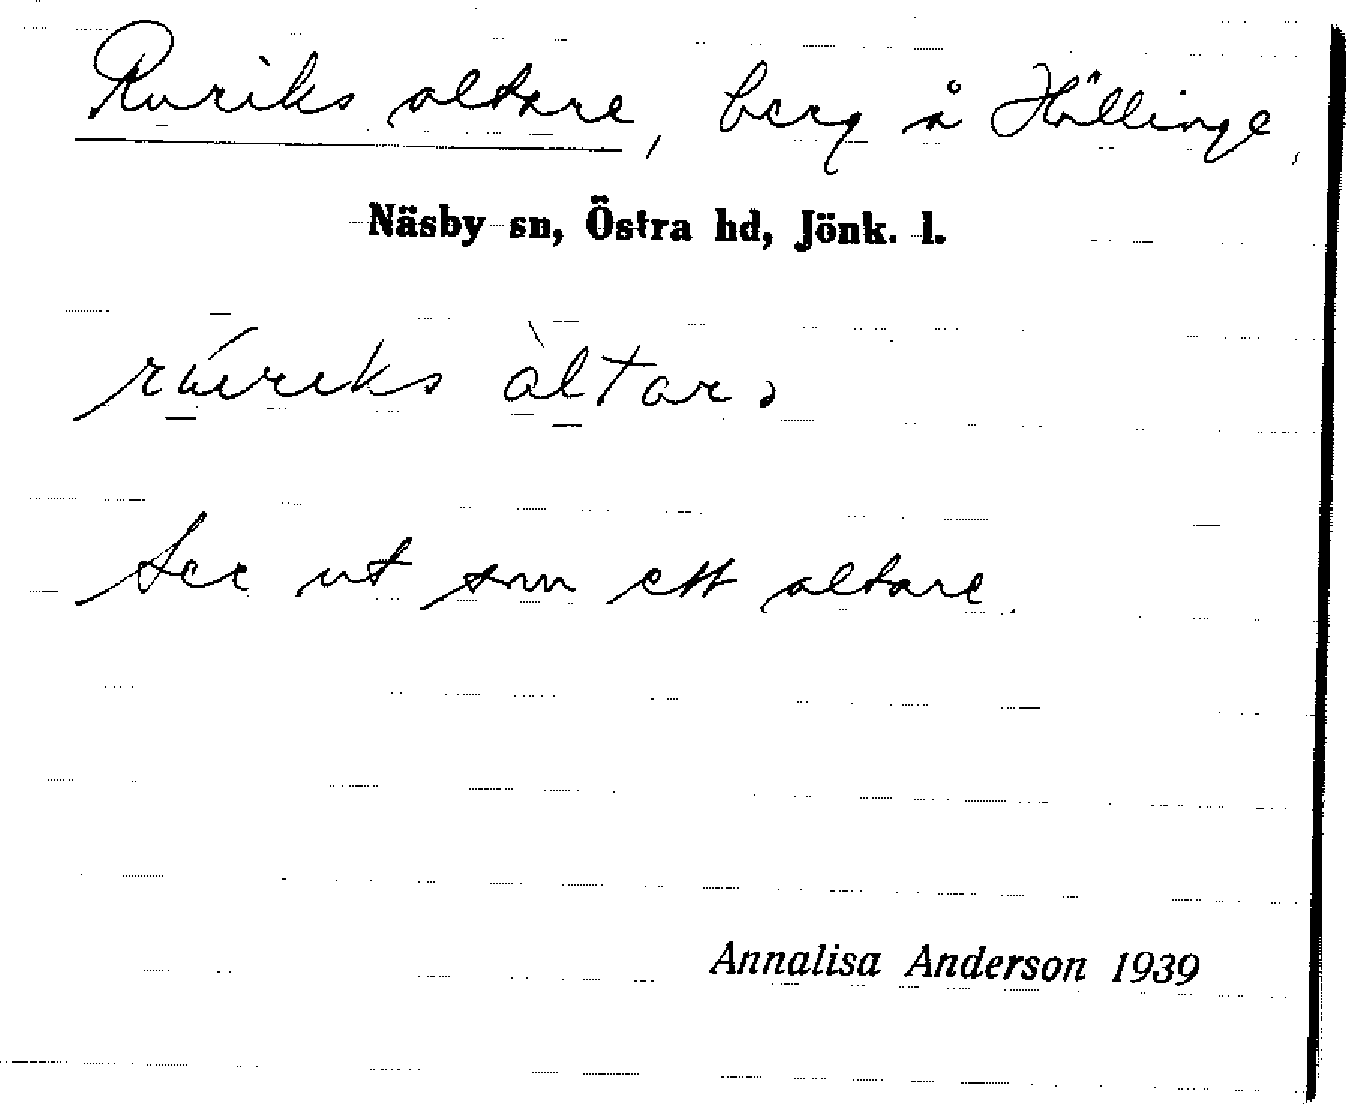 Ruriks altare, berg å Hällinge,
Näsby sn, Östra hd, Jönk. l.
altar
Ser ut som ett altare.
Annalisa Anderson 1939